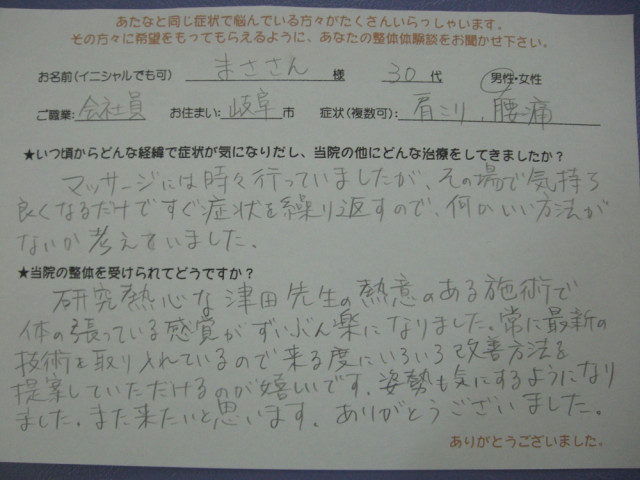 あたなと同じ症状で悩んでいる方々がたくさんいらっしゃいます。
その方々に希望をもってもらえるように、あなたの整体体験談をお聞かせ下さい。
お名前(イニシャルでも可) まささん 様 30代 男性・女性
ご職業:会社員 お住まい:岐阜市 症状(複数可):肩こり、腰痛
★いつ頃からどんな経緯で症状が気になりだし、当院の他にどんな治療をしてきましたか?
マッサージには時々行っていましたが、その場で気持ち
良くなるだけですぐ症状を繰り返すので、何かいい方法が
ないか考えていました。
★当院の整体を受けられてどうですか?
研究熱心な津田先生の熱意のある施術で
体の張っている感覚がずいぶん楽になりました。常に最新の
技術を取り入れているので来る度にいろいろ改善方法を
提案していただけるのが嬉しいです。姿勢も気にするようになり
ました。また来たいと思います。ありがとうございました。
ありがとうございました。